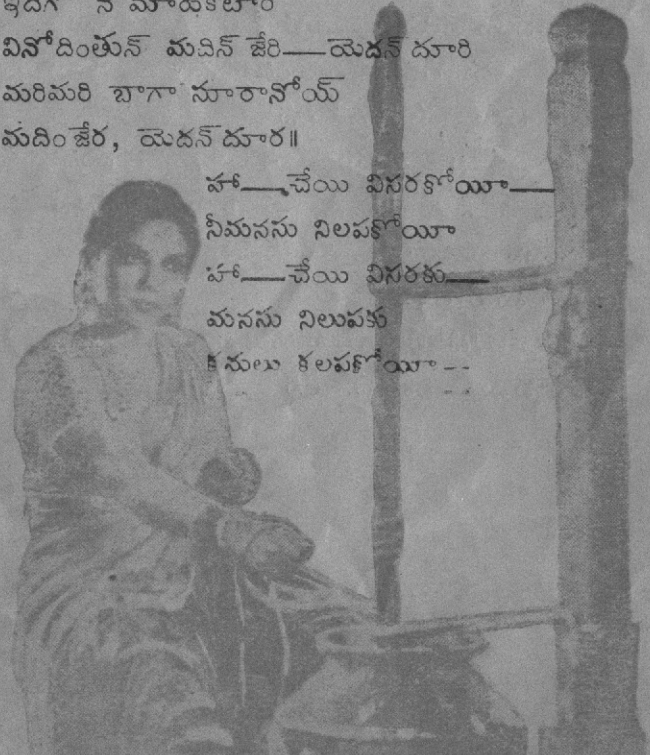 ఇదిగా నే మాయకటారి
వినోదింతున్ మదిన్ జేరి—యెదన్ దూరి
మరిమరి బాగా నూరానోయ్
మదింజేర, యెదన్ దూర॥
హా—చేయి విసరకోయీ—
నీమనసు నిలపకోయీ
హా—చేయి విసరకు—
మనసు నిలుపకు
కనులు కలపకోయీ --